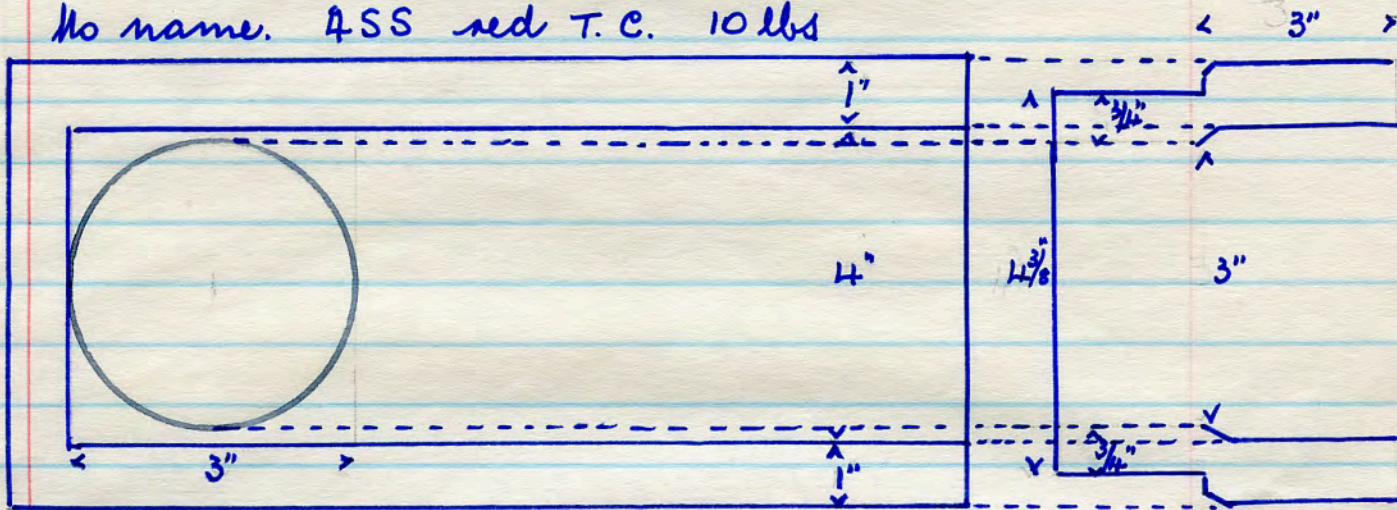 No name. ASS red T.C. 10 lbs
3"
1"
3/4"
4"
4 3/8"
3"
3"
1"
3/4"